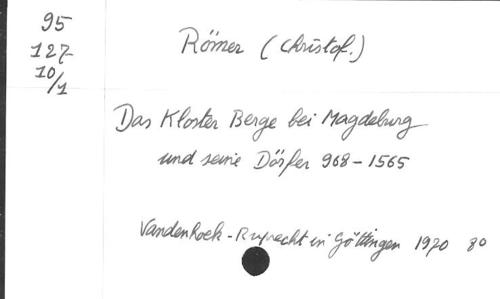 95
127
10/1
Römer (Christof.)
Das Kloster Berge bei Magdeburg
und seine Dörfer 968-1565
Vandenhoek-Ruprecht in Göttingen 1970 80